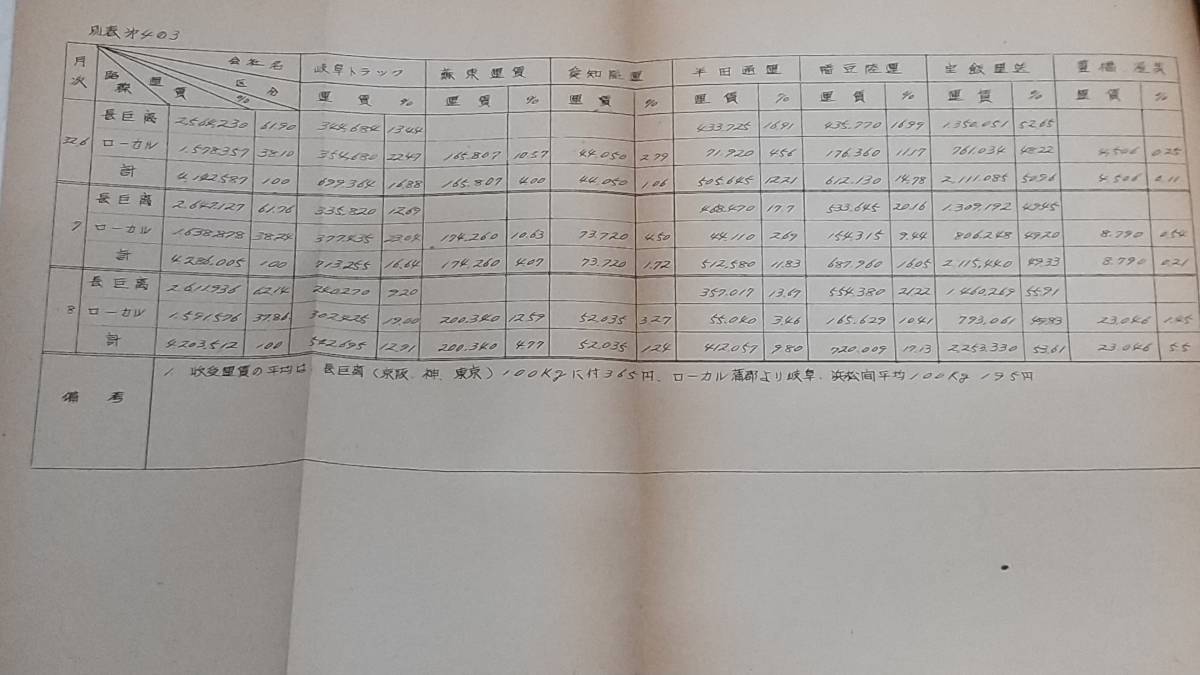 別表第403
月次 会社名 区分 運賃 % 路線 岐阜トラック 蘇東運賃 愛知陸運 半田通運 幡豆陸運 宝飯運送 豊橋
運賃 % 運賃 % 運賃 % 運賃 % 運賃 % 運賃 % 運賃 %
32.6 長巨离 2,564,230 61.90 344,684 13.44 433,725 16.91 435,770 16.99 1,350,051 52.65
ローカル 1,578,357 38.10 354,680 22.47 165,807 10.57 44,050 2.79 71,920 4.56 176,360 11.17 761,034 48.22 4,506 0.25
計 4,142,587 100 699,364 16.88 165,807 4.00 44,050 1.06 505,645 12.21 612,130 14.78 2,111,085 50.96 4,506 0.11
7 長巨离 2,642,127 61.76 335,820 12.69 468,470 17.7 533,645 20.16 1,309,192 49.45
ローカル 1,638,878 38.24 377,435 23.04 174,260 10.63 73,720 4.50 44,110 2.69 154,315 9.44 806,248 49.20 8,790 0.54
計 4,286,005 100 713,255 16.64 174,260 4.07 73,720 1.72 512,580 11.83 687,960 16.05 2,115,440 49.33 8,790 0.21
8 長巨离 2,611,936 62.14 240,270 9.20 357,017 13.67 554,380 21.22 1,460,269 55.91
ローカル 1,591,576 37.86 302,425 19.00 200,340 12.59 52,035 3.27 55,040 3.46 165,629 10.41 793,061 49.83 23,046 1.45
計 4,203,512 100 542,695 12.91 200,340 4.77 52,035 1.24 412,057 9.80 720,009 17.13 2,253,330 53.61 23,046 5.5
備考 1. 収受運賃の平均は 長巨离(京阪、神、東京)100Kgに付365円、ローカル蒲郡より岐阜、浜松间平均100Kg 195円